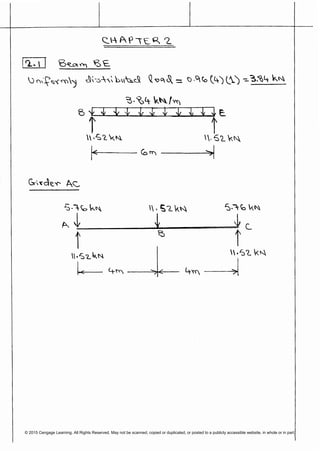 CHAPTER 2
2.1 Beam BE
Uniformly distributed load = 0.96 (4) (1) = 3.84 kN
3.84 kN/m
B E
11.52 kN 11.52 kN
6m
Girder AC
5.76 kN 11.52 kN 5.76 kN
A C
B
11.52 kN 11.52 kN
4m 4m
© 2015 Cengage Learning. All Rights Reserved. May not be scanned, copied or duplicated, or posted to a publicly accessible website, in whole or in part.